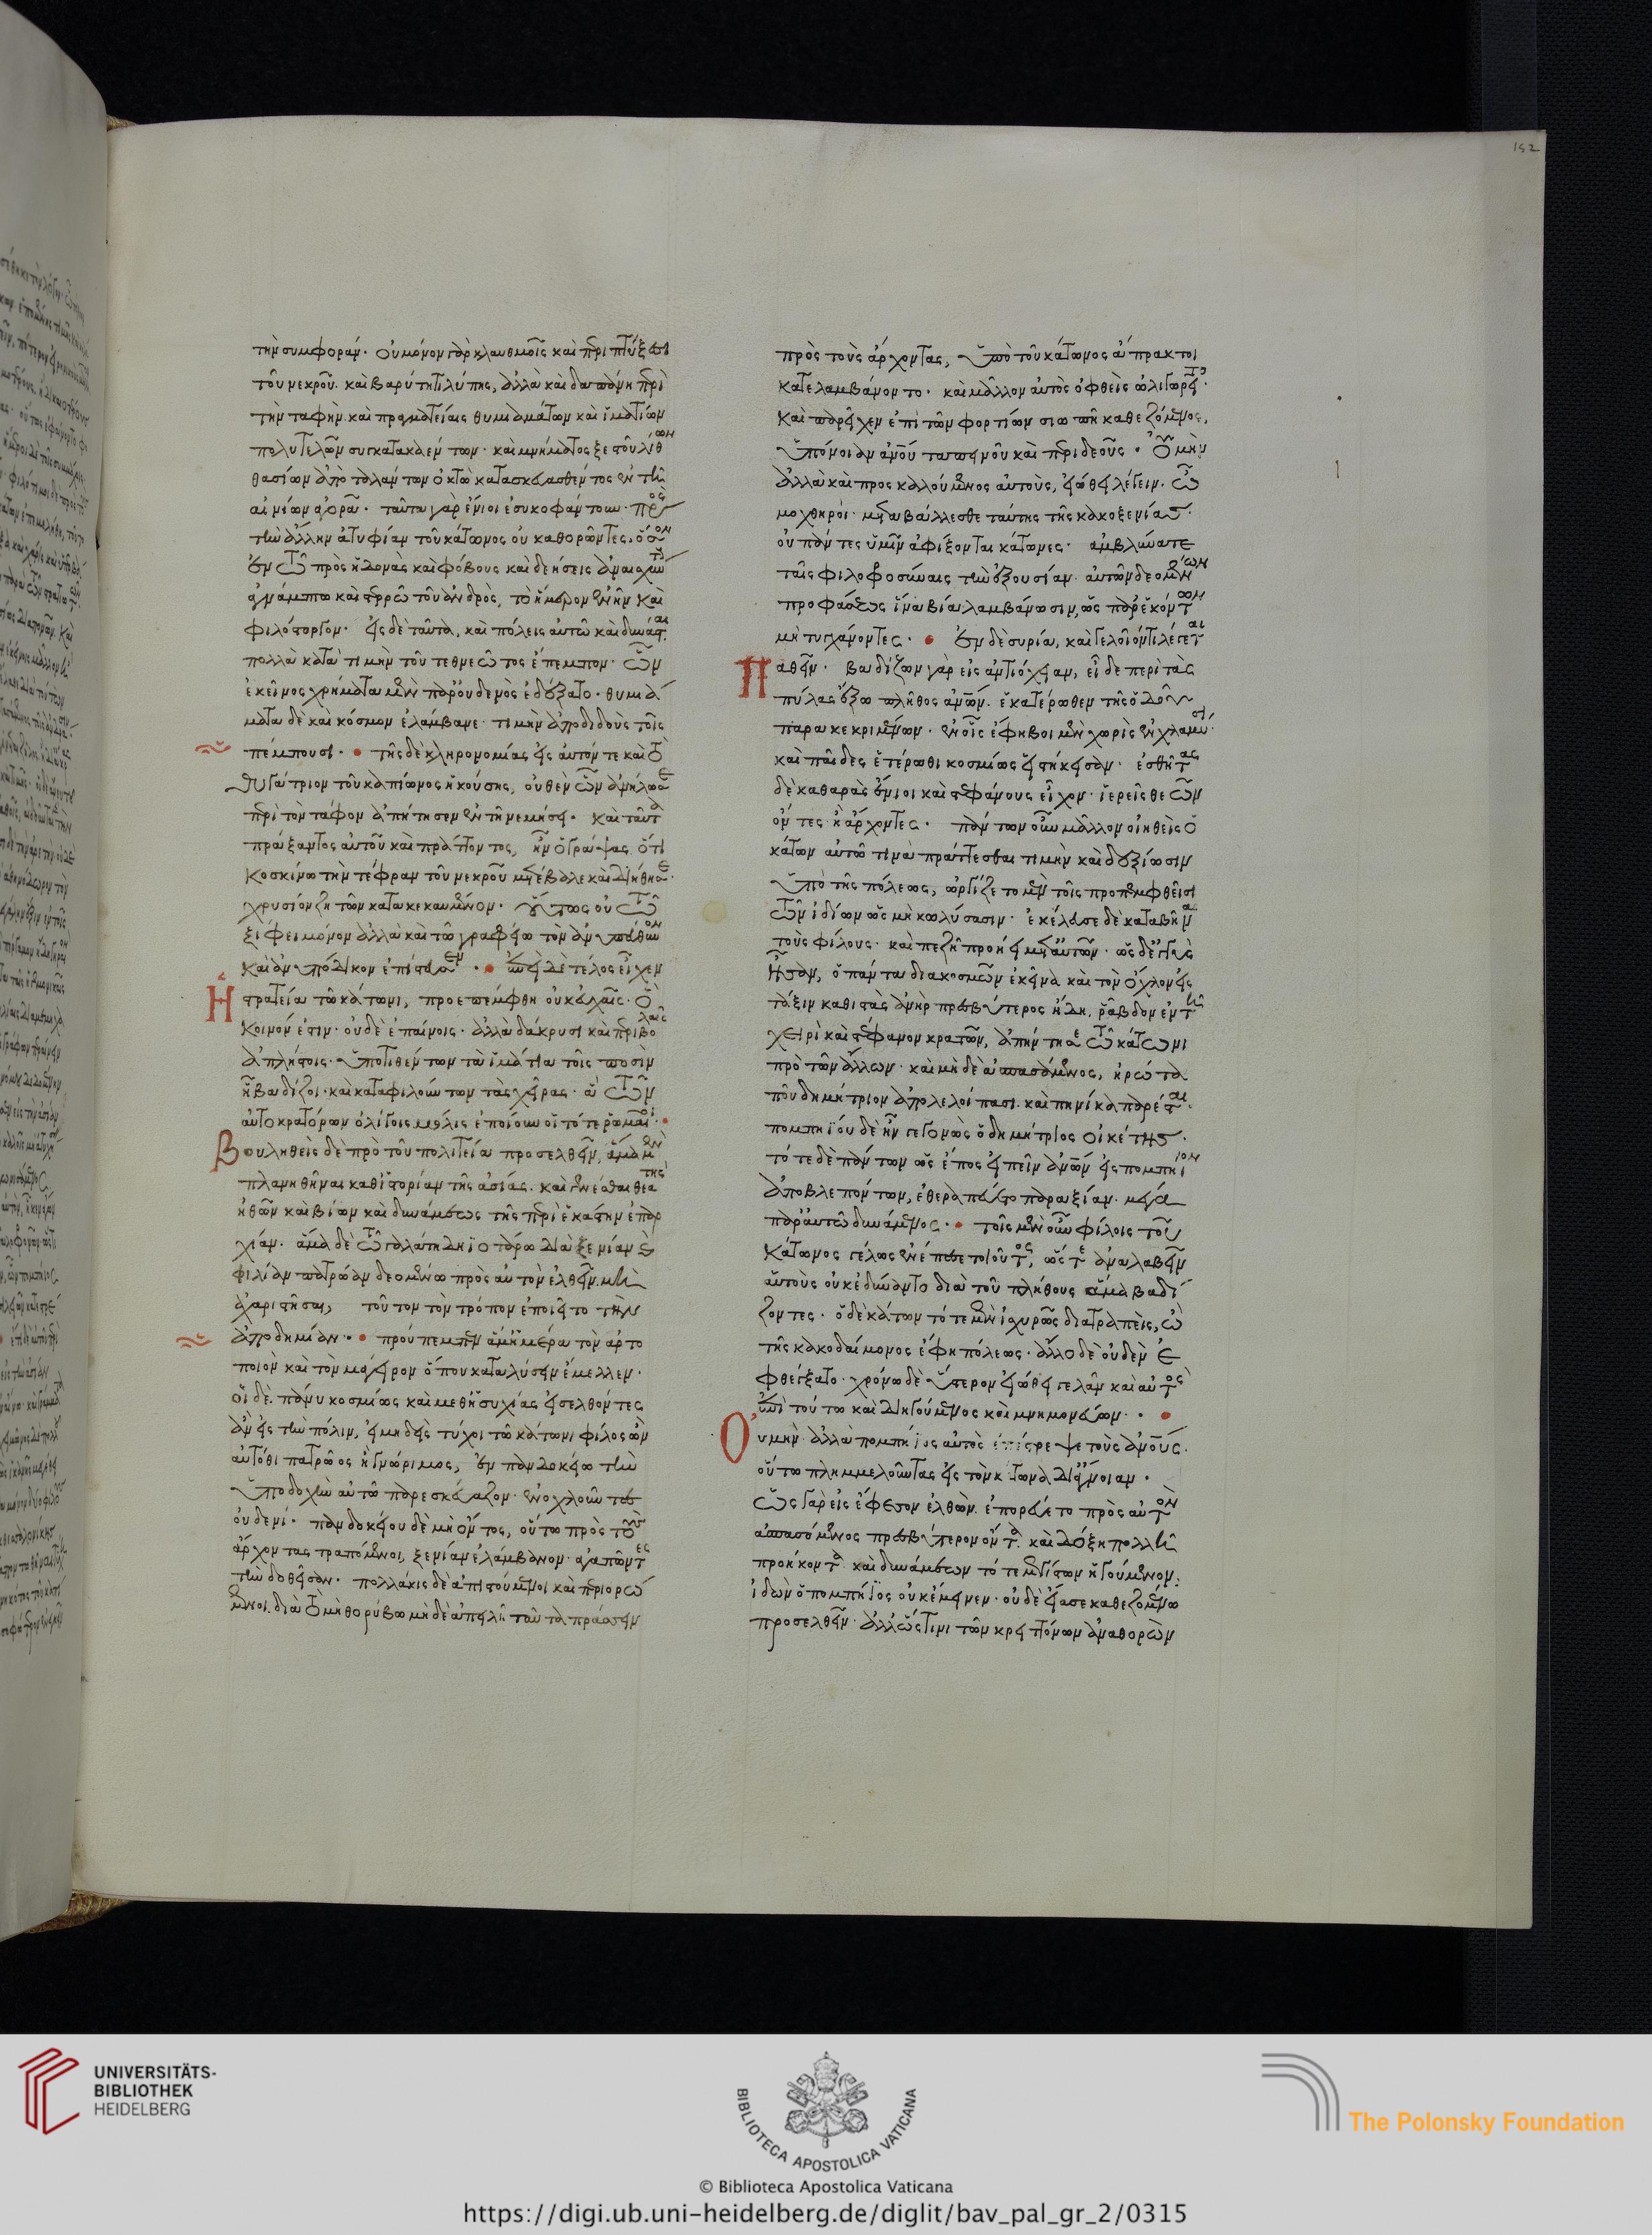 152
τὴν συμφοράν· οὐ μόνον γὰρ κλαυθμοῖς καὶ περιπτύξεσι
τοῦ νεκροῦ· καὶ βαρύτητι λύπης, ἀλλὰ καὶ δαπάνη περὶ
τὴν ταφὴν· καὶ πραγματείαις θυμιαμάτων καὶ ἱματίων
πολυτελῶν συγκατακαέντων· καὶ μνήματος ξεστοῦ λίθων
θασίων ἀπὸ ταλάντων ὀκτὼ κατασκευασθέντος ἐν τῆ
αἰνίων ἀγορᾶ· ταῦτα γὰρ ἔνιοι ἐσυκοφάντουν· πρὸς
τὴν ἄλλην ἀτυφίαν τοῦ κάτωνος οὐ καθορῶντες, ὅσον
ἐν τῶ πρὸς ἡδονὰς καὶ φόβους καὶ δεήσεις ἀναισχύντους
ἀγνάμπτω καὶ στερρῶ τοῦ ἀνδρὸς, τὸ ἥμερον ἐνῆν καὶ
φιλόστοργον· εἰς δὲ ταῦτα, καὶ πόλεις αὐτῶ καὶ δυνάσται
πολλὰ κατὰ τιμὴν τοῦ τεθνεῶτος ἔπεμπον· ὧν
ἐκεῖνος χρήματα μὲν παρ' οὐδενὸς ἐδέξατο· θυμιά
ματα δὲ καὶ κόσμον ἐλάμβανε· τιμὴν ἀποδιδοὺς τοῖς
πέμπουσι· τῆς δὲ κληρονομίας εἰς αὐτόν τε καὶ τὸ
θυγάτριον τοῦ καπίωνος ἡκούσης, οὐθὲν ὧν ἀνήλωσε
περὶ τὸν τάφον ἀπήτησεν ἐν τῆ νεμήσει· καὶ ταῦτα
πράξαντος αὐτοῦ καὶ πράττοντος, ἦν ὁ γράψας ὅτι
κοσκίνω τὴν τέφραν τοῦ νεκροῦ μετέβαλε καὶ διήθησε·
χρυσίον ζητῶν κατακεκαυμένον· οὕτως οὐ τῶ
ξίφει μόνον ἀλλὰ καὶ τῶ γραφείω τὸν ἀνυπεύθυνον
καὶ ἀνυπόδικον ἐπίστευσεν· ἐπεὶ δὲ τέλος εἶχεν
Ἡ στρατεία τῶ κάτωνι, προεπέμφθη οὐκ εὐχαῖς· ὃ
κοινόν ἐστιν· οὐδὲ ἐπαίνοις· ἀλλὰ δάκρυσι καὶ περιβολαῖς
ἀπλήστοις· ὑποτιθέντων τὰ ἱμάτια τοῖς ποσὶν
ἧ βαδίζοι· καὶ καταφιλούντων τὰς χεῖρας· ἃ τῶν
αὐτοκρατόρων ὀλίγοις μόλις ἐποίουν οἱ τότε ῥωμαῖοι·
Βουληθεὶς δὲ πρὸ τοῦ πολιτεία προσελθεῖν, ἅμα μὲν
πλανηθῆναι καθ' ἱστορίαν τῆς ἀσίας· καὶ γενέσθαι θεατὴς
ἠθῶν καὶ βίων καὶ δυνάμεως τῆς περὶ ἑκάστην ἐπαρ
χίαν· ἅμα δὲ τῶ γαλάτη δηϊοτάρω διὰ ξενίαν καὶ
φιλίαν πατρώαν δεομένω πρὸς αὐτὸν ἐλθεῖν· μὴ
ἀχαριστῆσαι, τοῦτον τὸν τρόπον ἐποιεῖτο τὴν
ἀποδημίαν· προύπεμπεν ἅμ' ἡμέρα τὸν ἀρτο
ποιὸν καὶ τὸν μάγειρον ὅπου καταλύσειν ἔμελλεν·
οἱ δὲ πάνυ κοσμίως καὶ μεθ' ἡσυχίας εἰσελθόντες
ἂν εἰς τὴν πόλιν, εἰ μηδεὶς τύχοι τῶ κάτωνι φίλος ὢν
αὐτόθι πατρῶος ἢ γνώριμος, ἐν πανδοκείω τὴν
ὑποδοχὴν αὐτῶ παρεσκεύαζον· ἐνοχλοῦντες
οὐδενί· πανδοκείου δὲ μὴ ὄντος, οὕτω πρὸς τοὺς
ἄρχοντας τραπόμενοι, ξενίαν ἐλάμβανον· ἀγαπῶντες
τὴν δοθεῖσαν· πολλάκις δὲ ἀπιστούμενοι καὶ περιορώ
μενοι διὰ τὸ μὴ θορύβω μηδὲ ἀπειλῆ ταῦτα πράσσειν
πρὸς τοὺς ἄρχοντας, ὑπὸ τοῦ κάτωνος ἄπρακτοι
κατελαμβάνοντο· καὶ μᾶλλον αὐτὸς ὀφθεὶς ὠλιγωρεῖτο·
καὶ παρεῖχεν ἐπὶ τῶν φορτίων σιωπῆ καθεζόμενος,
ὑπόνοιαν ἀνθρώπου ταπεινοῦ καὶ περιδεοῦς· οὐ μὴν
ἀλλὰ καὶ προσκαλούμενος αὐτοὺς, εἰώθει λέγειν· ὦ
μοχθηροὶ· μεταβάλλεσθε ταύτης τῆς κακοξενίας·
οὐ πάντες ὑμῖν ἀφίξονται κάτωνες· ἀμβλύνατε
ταῖς φιλοφροσύναις τὴν ἐξουσίαν· αὐτῶν δεομένων
προφάσεως ἵνα βία λαμβάνωσιν, ὡς παρ' ἑκόντων
μὴ τυγχάνοντες· ἐν δὲ συρία, καὶ γελοῖόν τι λέγεται
Παθεῖν· βαδίζων γὰρ εἰς ἀντιόχειαν, εἶδε περὶ τὰς
πύλας ἔξω πλῆθος ἀνθρώπων· ἑκατέρωθεν τῆς ὁδοῦ
παρακεκριμένων· ἐν οἷς ἔφηβοι μὲν χωρὶς ἐν χλαμύσι·
καὶ παῖδες ἑτέρωθι κοσμίως εἱστήκεισαν· ἐσθῆτας
δὲ καθαρὰς ἔνιοι καὶ στεφάνους εἶχον· ἱερεῖς θεῶν
ὄντες ἢ ἄρχοντες· πάντων οὖν μᾶλλον οἰηθεὶς ὁ
κάτων αὐτῶ τινα πράττεσθαι τιμὴν καὶ δεξίωσιν
ὑπὸ τῆς πόλεως, ὠργίζετο μὲν τοῖς προπεμφθεῖσι
τῶν ἰδίων ὡς μὴ κωλύσασιν· ἐκέλευσε δὲ καταβῆναι
τοὺς φίλους· καὶ πεζῆ προήει μετ' αὐτῶν· ὡς δὲ ἐγγὺς
ἦσαν, ὁ πάντα διακοσμῶν ἐκεῖνα καὶ τὸν ὄχλον εἰς
τάξιν καθιστὰς ἀνὴρ πρεσβύτερος ἤδη, ῥάβδον ἐν τῆ
χειρὶ καὶ στέφανον κρατῶν, ἀπήντησε τῶ κάτωνι
πρὸ τῶν ἄλλων· καὶ μηδὲ ἀσπασάμενος, ἠρώτα
ποῦ δημήτριον ἀπολελοίπασι· καὶ πηνίκα παρέσται·
πομπηΐου δὲ ἦν γεγονὼς ὁ δημήτριος οἰκέτης·
τότε δὲ πάντων ὡς ἔπος εἰπεῖν ἀνθρώπων εἰς πομπήϊον
ἀποβλεπόντων, ἐθεραπεύετο παρ' ἀξίαν· μέγα
παρ' αὐτῶ δυνάμενος· τοῖς μὲν οὖν φίλοις τοῦ
κάτωνος γέλως ἐνέπεσε τοιοῦτος, ὥστε ἀναλαβεῖν
αὑτοὺς οὐκ ἐδύναντο διὰ τοῦ πλήθους ἅμα βαδί
ζοντες· ὁ δὲ κάτων τότε μὲν ἰσχυρῶς διατραπεὶς, ὢ
τῆς κακοδαίμονος ἔφη πόλεως· ἄλλο δὲ οὐδὲν ἐ
φθέγξατο· χρόνω δὲ ὕστερον εἰώθει γελᾶν καὶ αὐτὸς
ἐπὶ τούτω καὶ διηγούμενος καὶ μνημονεύων·
Οὐ μὴν ἀλλὰ πομπήιος αὐτὸς ἐπέστρεψε τοὺς ἀνθρώπους·
οὕτω πλημμελοῦντας εἰς τὸν κάτωνα δι' ἄγνοιαν·
ὡς γὰρ εἰς ἔφεσον ἐλθὼν· ἐπορεύετο πρὸς αὐτὸν
ἀσπασόμενος πρεσβύτερον ὄντα· καὶ δόξη πολλῆ
προήκοντα καὶ δυνάμεων τότε μεγίστων ἡγούμενον·
ἰδὼν ὁ πομπήϊος οὐκ ἔμεινεν· οὐδὲ εἴασε καθεζομένω
προσελθεῖν· ἀλλ' ὥς τινι τῶν κρειττόνων ἀναθορὼν
UNIVERSITÄTS-
BIBLIOTHEK
HEIDELBERG
BIBLIOTECA APOSTOLICA VATICANA
The Polonsky Foundation
© Biblioteca Apostolica Vaticana
https://digi.ub.uni-heidelberg.de/diglit/bav_pal_gr_2/0315